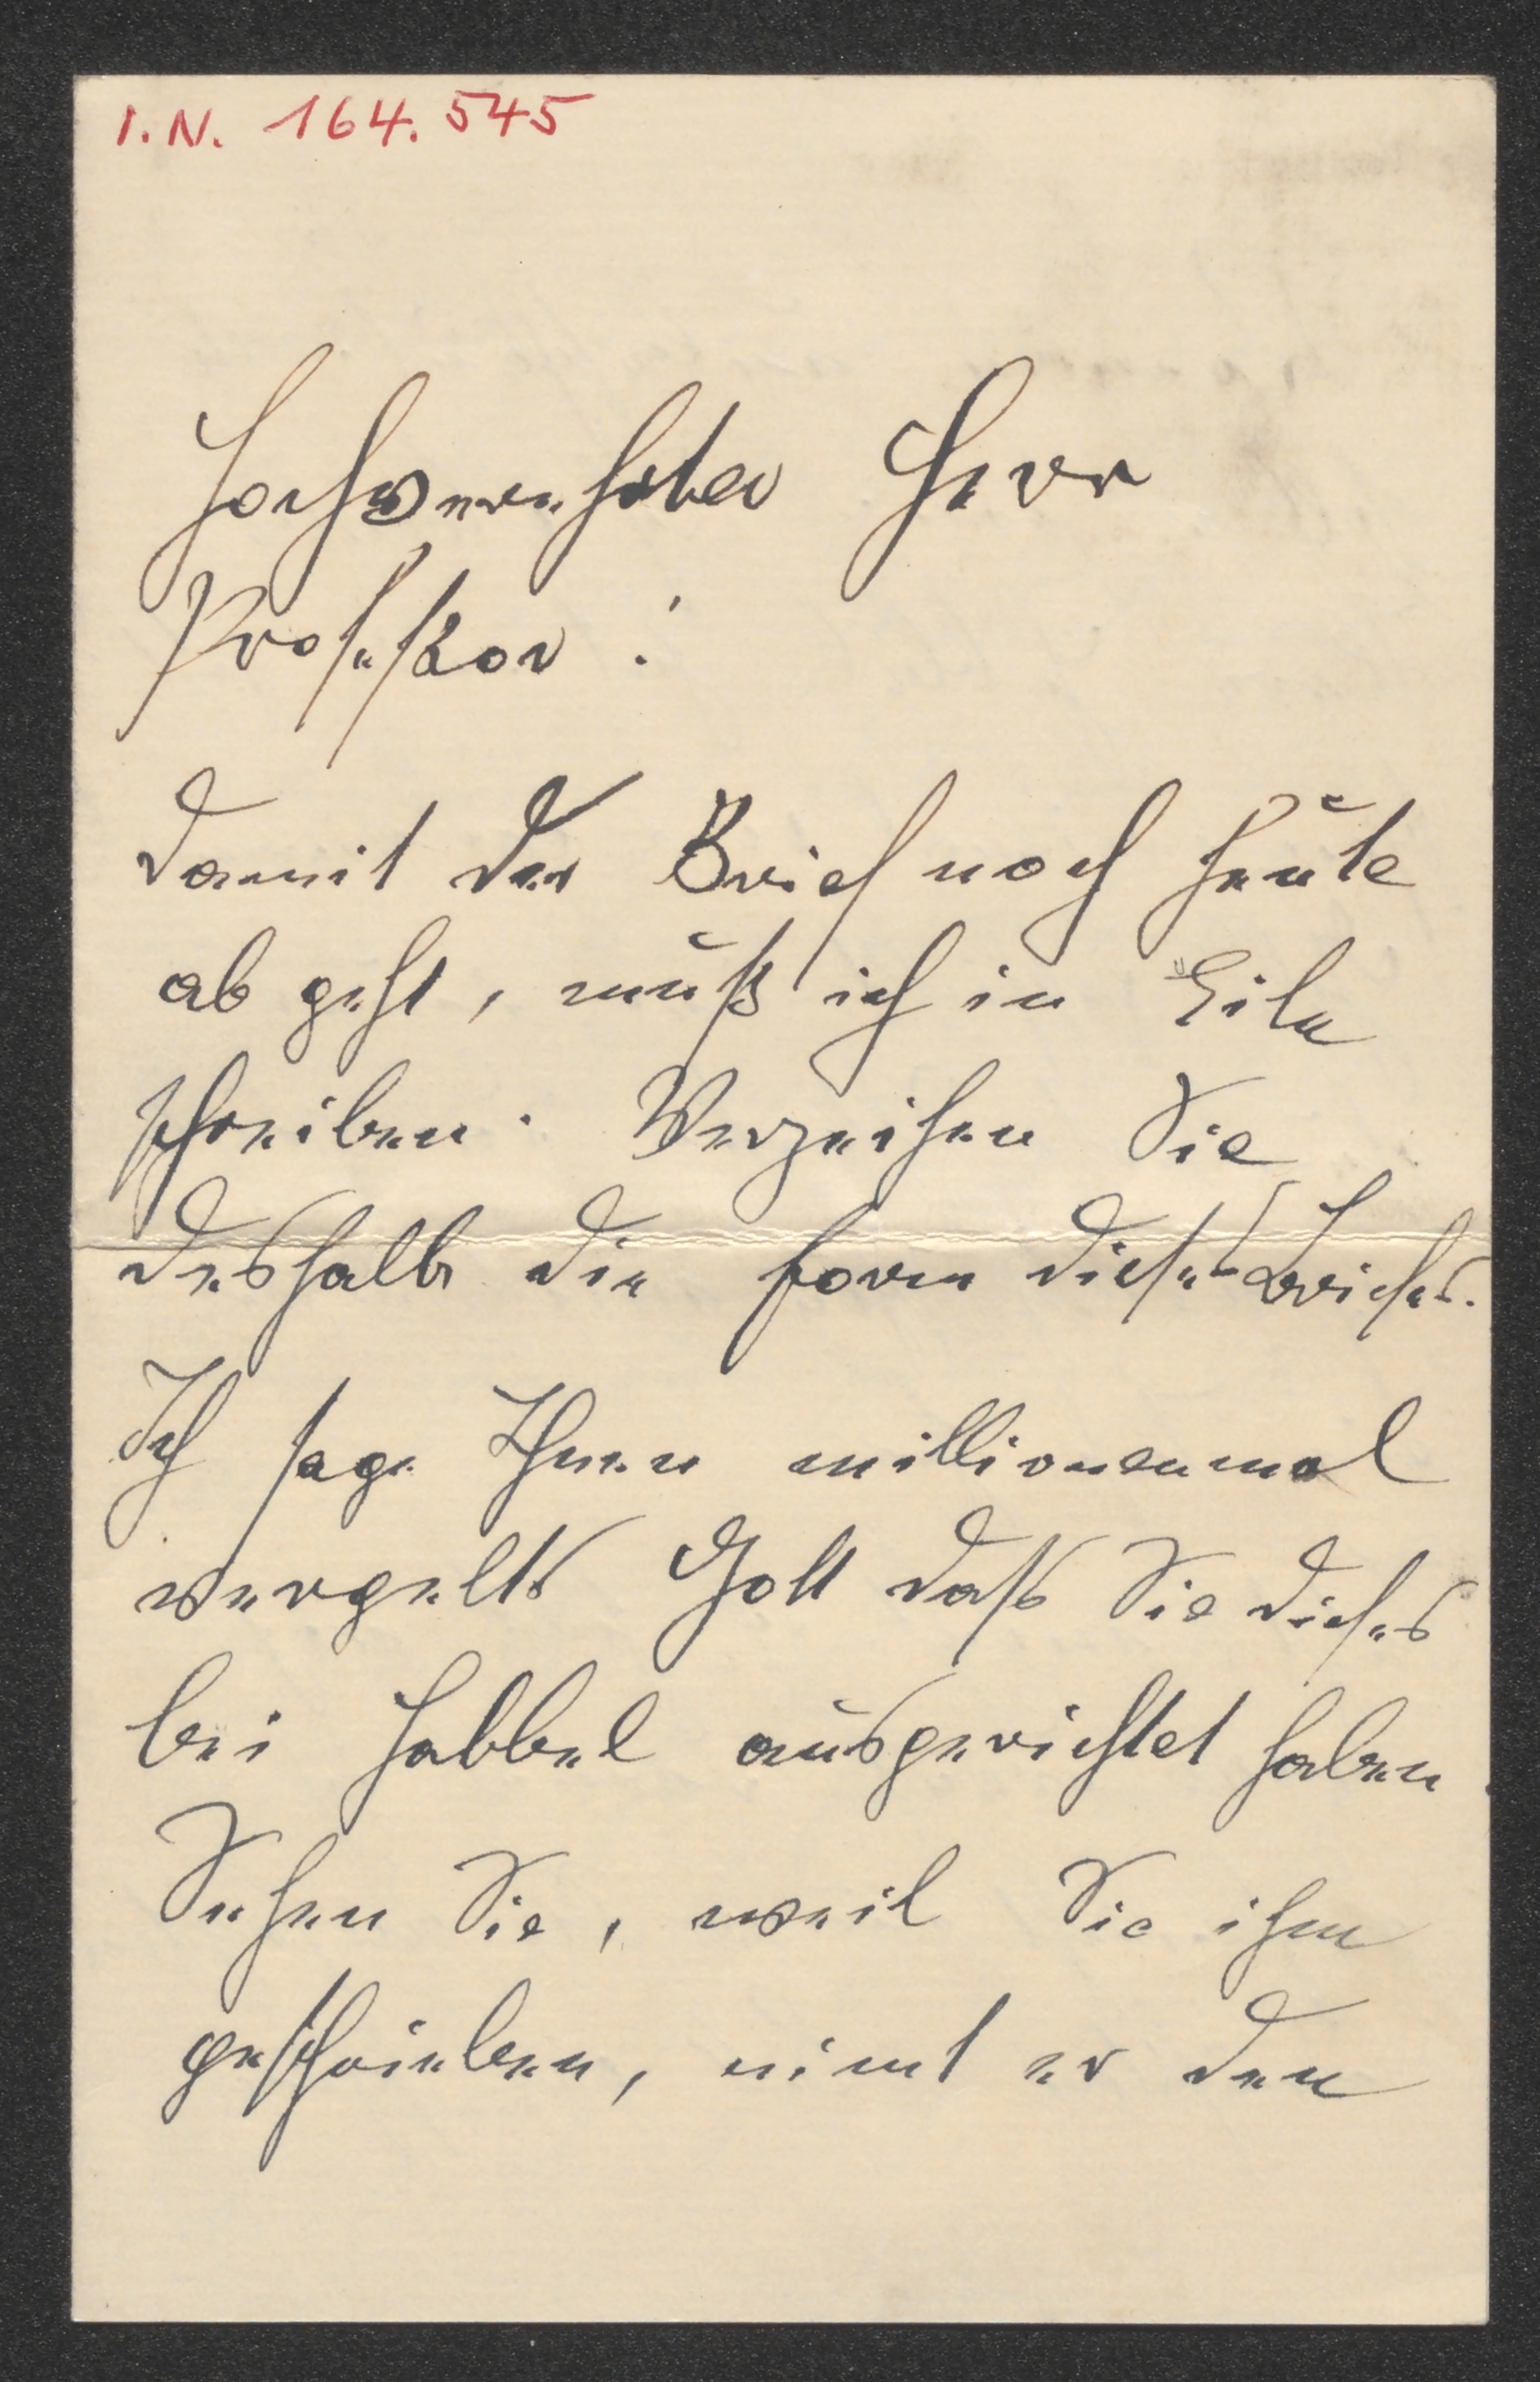 I.N. 164.545
Hochverehrter Herr
Professor!
Damit der Brief noch heute
ab geht, muß ich in Eile
schreiben. Verzeihen Sie
deshalb die Form dieses Briefes.
Ich sage Ihnen millionenmal
vergelts Gott daß Sie dieses
bei Habbel ausgerichtet haben.
Sehen Sie, weil Sie ihm
geschrieben, nimt er den